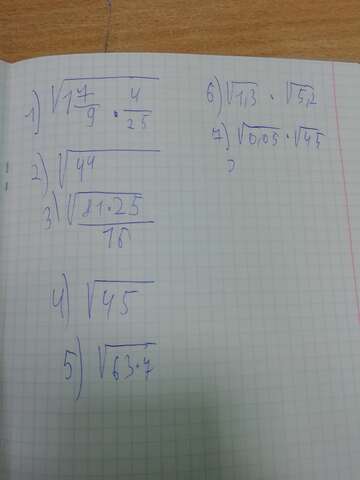 1) √1 7/9 · 4/25
2) √44
3) √81·25/16
4) √45
5) √63·7
6) √1,3 · √5,2
7) √0,05 · √45